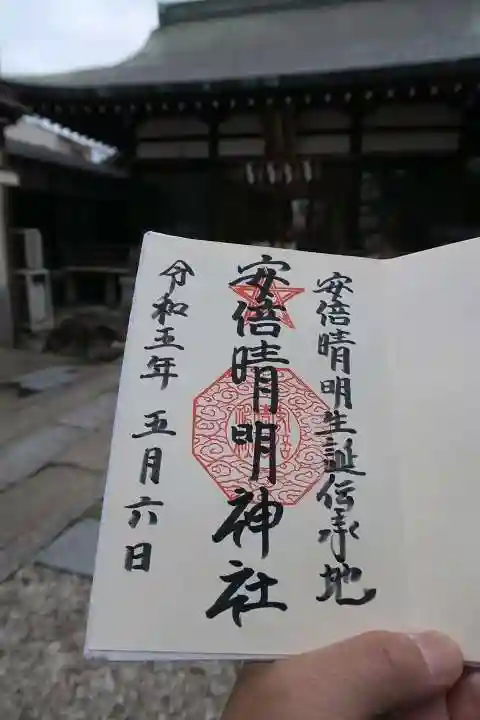 安倍晴明生誕伝承地
安倍晴明神社
令和五年 五月六日